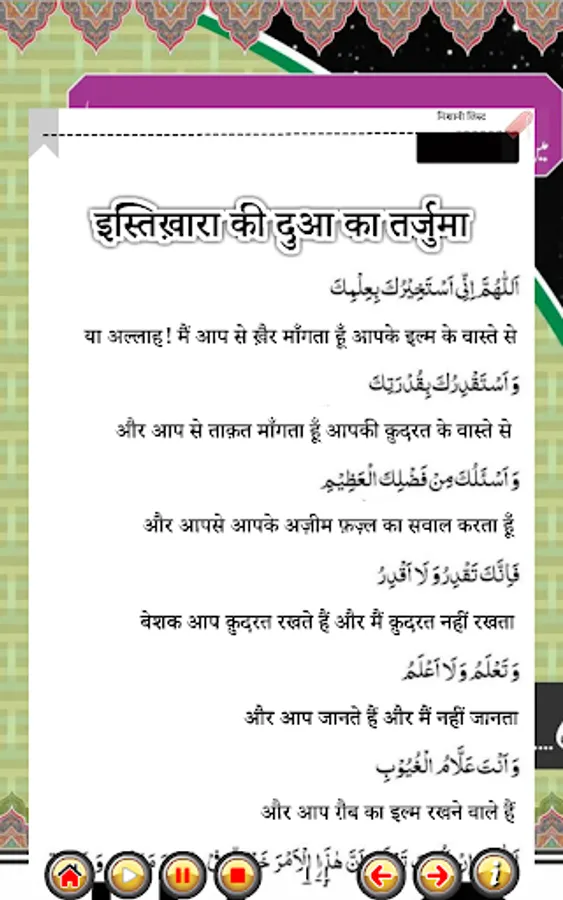 निशानी लिस्ट
इस्तिख़ारा की दुआ का तर्जुमा
اَللّٰهُمَّ اِنِّیْ اَسْتَخِيْرُكَ بِعِلْمِكَ
या अल्लाह! मैं आप से ख़ैर माँगता हूँ आपके इल्म के वास्ते से
وَ اَسْتَقْدِرُكَ بِقُدْرَتِكَ
और आप से ताक़त माँगता हूँ आपकी क़ुदरत के वास्ते से
وَ اَسْئَلُكَ مِنْ فَضْلِكَ الْعَظِيْمِ
और आपसे आपके अज़ीम फ़ज़्ल का सवाल करता हूँ
فَاِنَّكَ تَقْدِرُ وَ لَا اَقْدِرُ
बेशक आप क़ुदरत रखते हैं और मैं क़ुदरत नहीं रखता
وَ تَعْلَمُ وَ لَا اَعْلَمُ
और आप जानते हैं और मैं नहीं जानता
وَ اَنْتَ عَلَّامُ الْغُيُوْبِ
और आप ग़ैब का इल्म रखने वाले हैं
هٰذَا الْاَمْرَ
14